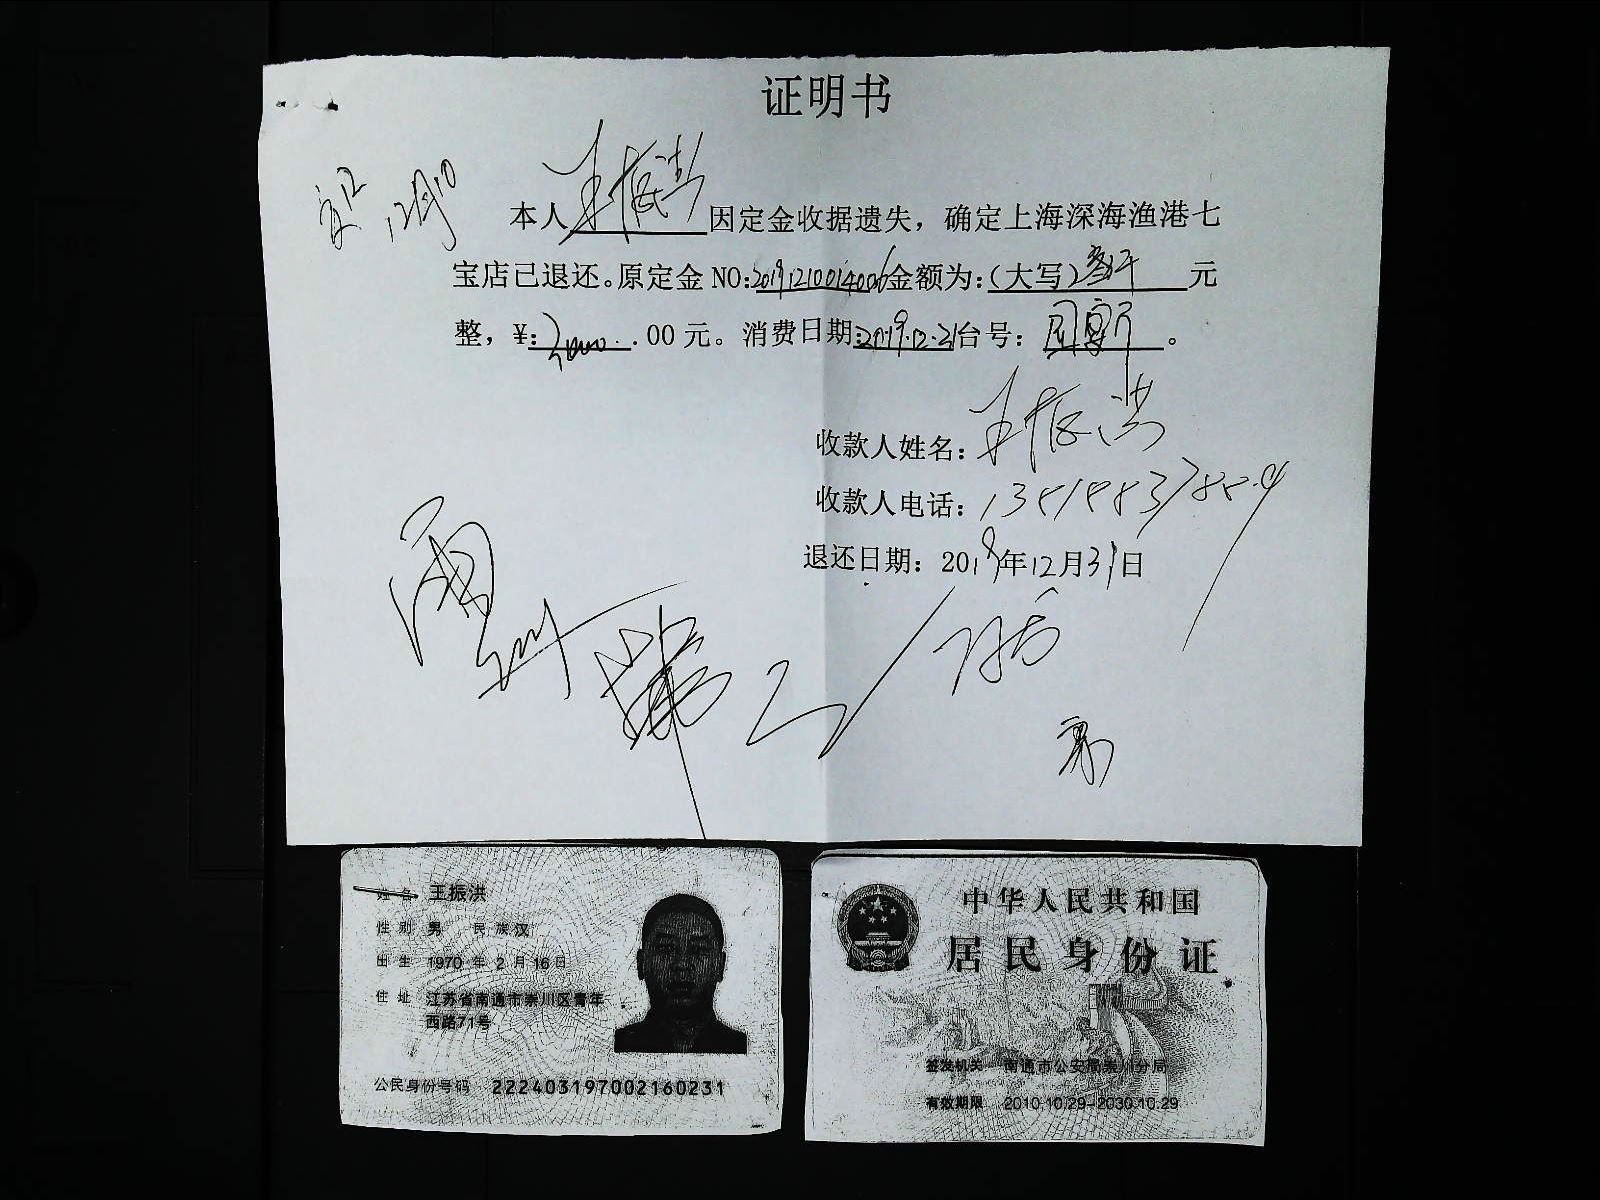 证明书
12月10
本人王振洪因定金收据遗失，确定上海深海渔港七
宝店已退还。原定金NO:20191210014006金额为:(大写)叁仟元
整，¥:3000.00元。消费日期:2019.12.21台号:
收款人姓名:王振洪
收款人电话:
退还日期: 2019年12月31日
姓名 王振洪
性别 男 民族汉
出生 1970年2月16日
住址 江苏省南通市崇川区青年
西路71号
公民身份号码 222403197002160231
中华人民共和国
居民身份证
签发机关 南通市公安局崇川分局
有效期限 2010.10.29-2030.10.29